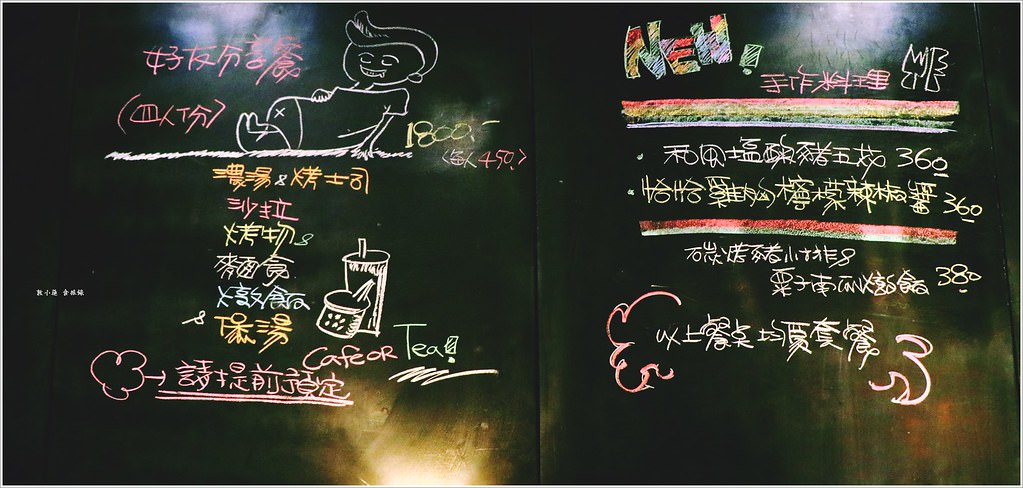 好友分享餐
(四人份)
1800.-
〈每人450〉
濃湯&烤土司
沙拉
烤物&
麵食
燉飯
&煲湯
Cafe OR Tea!
請提前預定
NEW!
手作料理
和風塩酸豬五花 360
恰恰雞肉檸檬辣椒醬 360
碳烤豬小排&
栗子南瓜燉飯 380
以上餐点均為套餐